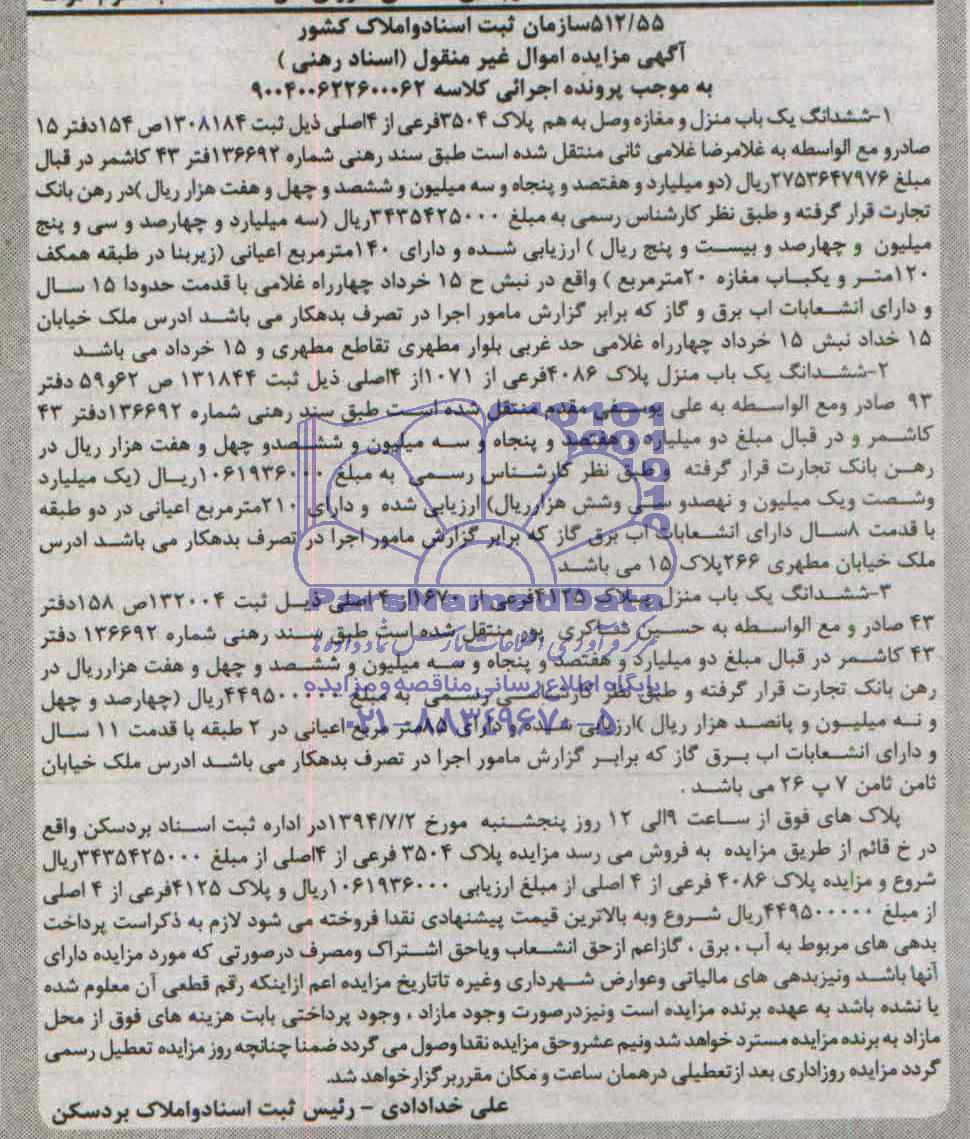 ۵۱۲/۵۵سازمان ثبت اسنادواملاک کشور
آگهی مزایده اموال غیر منقول (اسناد رهنی )
به موجب پرونده اجرائی کلاسه ۹۰۰۴۰۰۶۲۲۶۰۰۰۶۲
۱-ششدانگ یک باب منزل و مغازه وصل به هم پلاک ۳۵۰۴فرعی از ۴اصلی ذیل ثبت ۱۳۰۸۱۸۴ص ۱۵۴دفتر ۱۵
صادرو مع الواسطه به غلامرضا غلامی ثانی منتقل شده است طبق سند رهنی شماره ۱۳۶۶۹۲فتر ۴۳ کاشمر در قبال
مبلغ ۲۷۵۳۶۴۷۹۷۶ریال (دو میلیارد و هفتصد و پنجاه و سه میلیون و ششصد و چهل و هفت هزار ریال )در رهن بانک
تجارت قرار گرفته و طبق نظر کارشناس رسمی به مبلغ ۳۴۳۵۴۲۵۰۰۰ریال (سه میلیارد و چهارصد و سی و پنج
میلیون و چهارصد و بیست و پنج ریال ) ارزیابی شده و دارای ۱۴۰مترمربع اعیانی (زیربنا در طبقه همکف
۱۲۰متر و یکباب مغازه ۲۰مترمربع ) واقع در نبش خ ۱۵ خرداد چهارراه غلامی با قدمت حدودا ۱۵ سال
و دارای انشعابات اب برق و گاز که برابر گزارش مامور اجرا در تصرف بدهکار می باشد ادرس ملک خیابان
۱۵ خداد نبش ۱۵ خرداد چهارراه غلامی حد غربی بلوار مطهری تقاطع مطهری و ۱۵ خرداد می باشد
۲-ششدانگ یک باب منزل پلاک ۴۰۸۶فرعی از ۱۰۷۱از ۴اصلی ذیل ثبت ۱۳۱۸۴۴ ص ۶۲و۵۹ دفتر
۹۳ صادر ومع الواسطه به علی یوسفی مقدم منتقل شده است طبق سند رهنی شماره ۱۳۶۶۹۲دفتر ۴۳
کاشمر و در قبال مبلغ دو میلیارد و هفتصد و پنجاه و سه میلیون و ششصدو چهل و هفت هزار ریال در
رهن بانک تجارت قرار گرفته و طبق نظر کارشناس رسمی به مبلغ ۱۰۶۱۹۳۶۰۰۰ریال (یک میلیارد
وشصت ویک میلیون و نهصدو سی وشش هزارریال) ارزیابی شده و دارای ۲۱۰مترمربع اعیانی در دو طبقه
با قدمت ۸سال دارای انشعابات اب برق گاز که برابر گزارش مامور اجرا در تصرف بدهکار می باشد ادرس
ملک خیابان مطهری ۲۶۶پلاک ۱۵ می باشد
۳-ششدانگ یک باب منزل پلاک ۴۱۲۵فرعی از ۱۶۷۰از ۴ اصلی ذیل ثبت ۱۳۲۰۰۴ص ۱۵۸دفتر
۴۳ صادر و مع الواسطه به حسین شاکری پور منتقل شده است طبق سند رهنی شماره ۱۳۶۶۹۲ دفتر
۴۳ کاشمر در قبال مبلغ دو میلیارد و هفتصد و پنجاه و سه میلیون و ششصد و چهل و هفت هزارریال در
رهن بانک تجارت قرار گرفته و طبق نظر کارشناسی رسمی به مبلغ ۴۴۹۵۰۰۰۰۰ریال (چهارصد و چهل
و نه میلیون و پانصد هزار ریال )ارزیابی شده و دارای ۸۵متر مربع اعیانی در ۲ طبقه با قدمت ۱۱ سال
و دارای انشعابات اب برق گاز که برابر گزارش مامور اجرا در تصرف بدهکار می باشد ادرس ملک خیابان
ثامن ثامن ۷ پ ۲۶ می باشد .
پلاک های فوق از ساعت ۹الی ۱۲ روز پنجشنبه مورخ ۱۳۹۴/۷/۲در اداره ثبت اسناد بردسکن واقع
در خ قائم از طریق مزایده به فروش می رسد مزایده پلاک ۳۵۰۴ فرعی از ۴اصلی از مبلغ ۳۴۳۵۴۲۵۰۰۰ریال
شروع و مزایده پلاک ۴۰۸۶ فرعی از ۴ اصلی از مبلغ ارزیابی ۱۰۶۱۹۳۶۰۰۰ریال و پلاک ۴۱۲۵فرعی از ۴ اصلی
از مبلغ ۴۴۹۵۰۰۰۰۰ریال شروع وبه بالاترین قیمت پیشنهادی نقدا فروخته می شود لازم به ذکراست پرداخت
بدهی های مربوط به آب ، برق ، گازاعم ازحق انشعاب ویاحق اشتراک ومصرف درصورتی که مورد مزایده دارای
آنها باشد ونیزبدهی های مالیاتی وعوارض شهرداری وغیره تاتاریخ مزایده اعم ازاینکه رقم قطعی آن معلوم شده
یا نشده باشد به عهده برنده مزایده است ونیزدرصورت وجود مازاد ، وجود پرداختی بابت هزینه های فوق از محل
مازاد به برنده مزایده مسترد خواهد شد ونیم عشروحق مزایده نقدا وصول می گردد ضمنا چنانچه روز مزایده تعطیل رسمی
گردد مزایده روزاداری بعد ازتعطیلی درهمان ساعت و مکان مقرربرگزارخواهد شد.
علی خدادادی - رئیس ثبت اسنادواملاک بردسکن
ParsNamadData
پایگاه اطلاع رسانی مناقصه و مزایده
۰۲۱-۸۸۳۴۹۶۷۰-۵